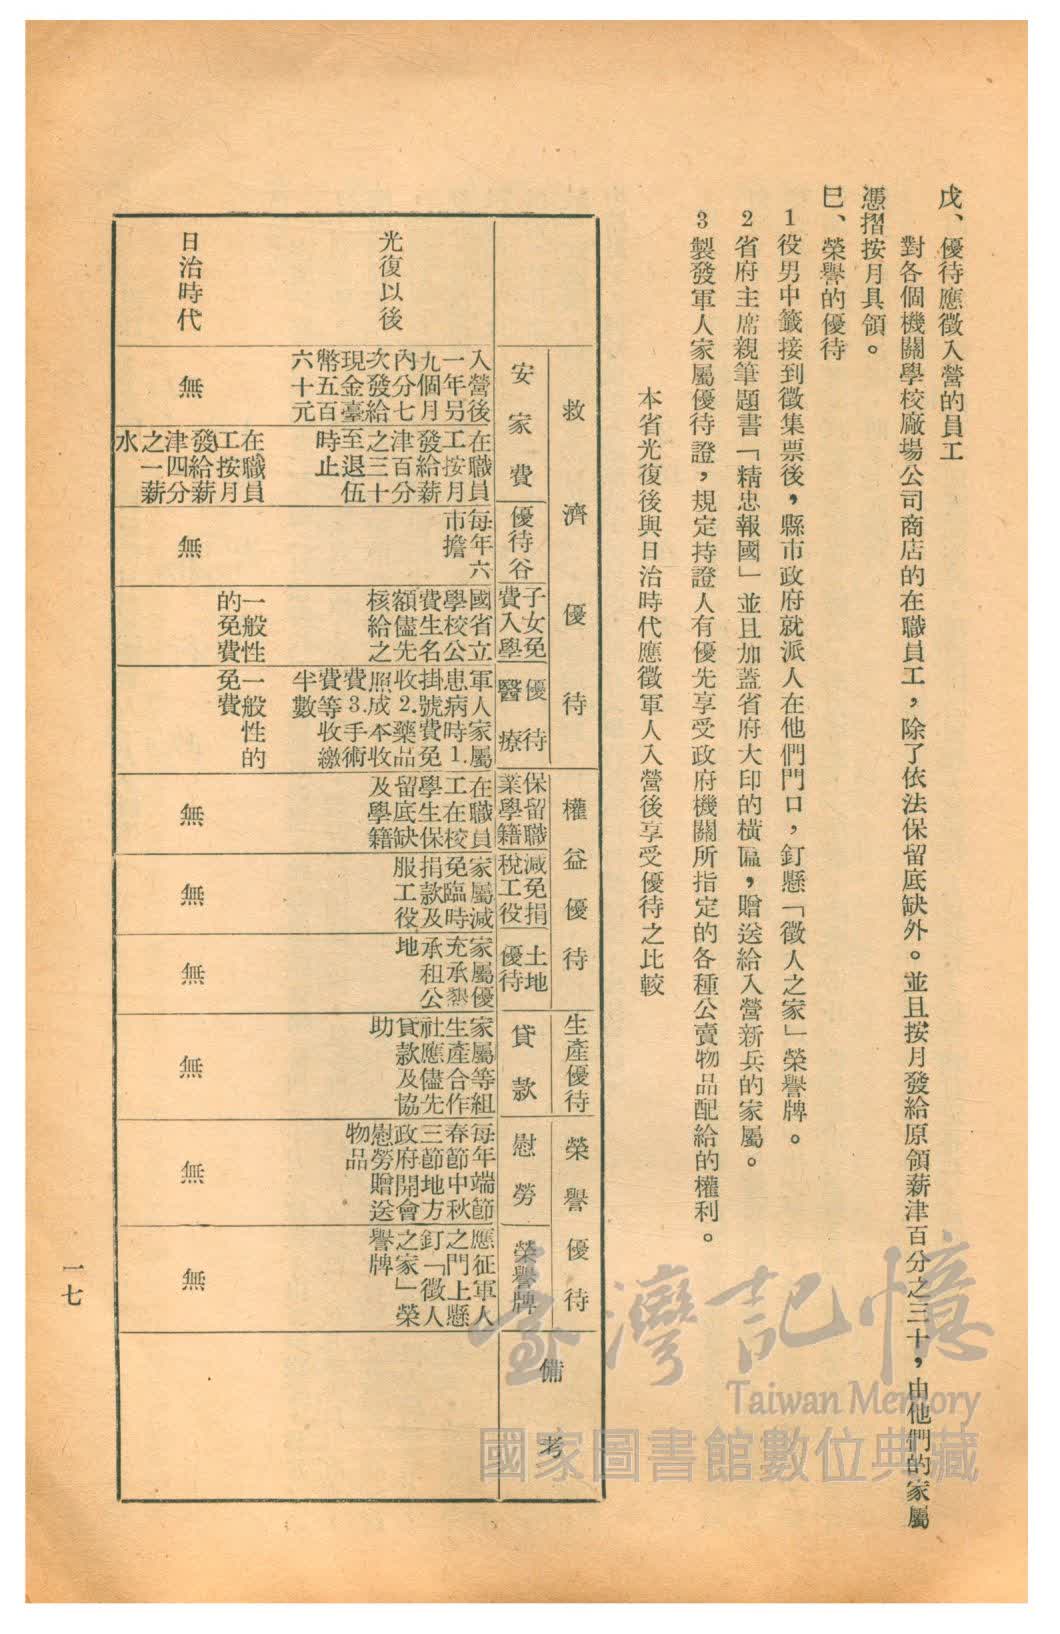 戊、優待應徵入營的員工
對各個機關學校廠場公司商店的在職員工，除了依法保留底缺外。並且按月發給原領薪津百分之三十，由他們的家屬
憑摺按月具領。
巳、榮譽的優待
1役男中籤接到徵集票後，縣市政府就派人在他們門口，釘懸「徵人之家」榮譽牌。
2省府主席親筆題書「精忠報國」並且加蓋省府大印的橫匾，贈送給入營新兵的家屬。
3製發軍人家屬優待證，規定持證人有優先享受政府機關所指定的各種公賣物品配給的權利。
本省光復後與日治時代應徵軍人入營後享受優待之比較
救濟優待
權益優待
生產優待
榮譽優待
備考
安家費
優待谷
子女免
費入學
優待
醫療
保留職
業學籍
減免捐
稅工役
土地
優待
貸款
慰勞
榮譽牌
光復以後
入營後
一年另
九個月
內分七
次發給
現金臺
幣五百
六十元
在職員
工按月
發給薪
津百分
之三十
至退伍
時止
每年六
市擔
國省立
學校公
費生名
額儘先
核給之
軍人家屬
患病時1.
掛號費免
收2.藥品
照成本收
費3.手術
費等收繳
半數
在職員
工在校
學生保
留底缺
及學籍
家屬減
免臨時
捐款及
服工役
家屬優
充承懇
承租公
地
家屬等組
生產合作
社應儘先
貸款及協
助
每年端節
春節中秋
三節地方
政府開會
慰勞贈送
物品
應征軍人
之門上懸
釘「徵人
之家」榮
譽牌
日治時代
無
在職員
工按月
發給薪
津四分
之一薪
水
無
一般性
的免費
一般性的
免費
無
無
無
無
無
無
一七
臺灣記憶
Taiwan Memory
國家圖書館數位典藏